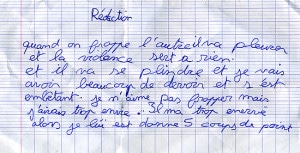 Rédaction
quand on frappe l'autre il va pleurer
et la violence sert a rien.
et il va se plindre et je vais
avoir beaucoup de devoir et s'est
embêtant. je n'aime pas frapper mais
j'avais trop envie. Il ma trop enervé
alors je lui est donné 5 coups de point